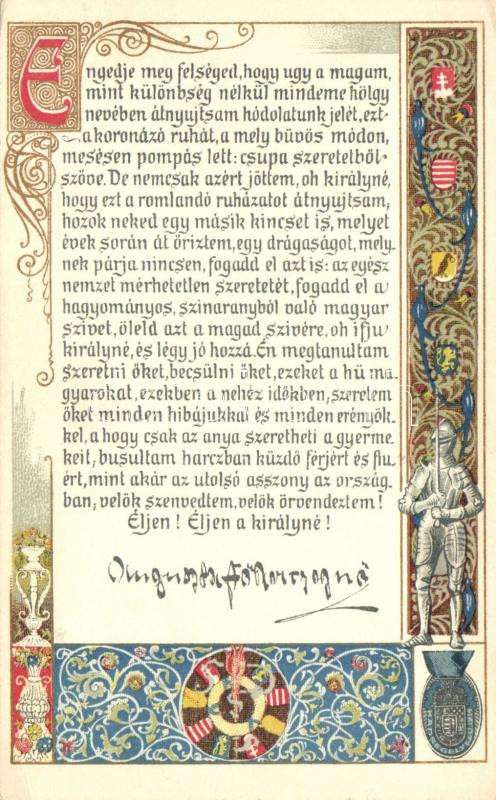 Engedje meg felséged, hogy ugy a magam,
mint különbség nélkül mindeme hölgy
nevében átnyujtsam hódolatunk jelét, ezt
a koronázó ruhát, a mely büvös módon,
mesésen pompás lett: csupa szeretetböl
szöve. De nemcsak azért jöttem, oh királyné,
hogy ezt a romlandó ruházatot átnyujtsam;
hozok neked egy másik kincset is, melyet
évek során át öriztem, egy drágaságot, mely-
nek párja nincsen, fogadd el azt is: az egész
nemzet mérhetetlen szeretetét, fogadd el a
hagyományos, szinaranyból való magyar
szivet, öleld azt a magad szivére, oh ifju
királyné, és légy jó hozzá. Én megtanultam
szeretni öket, becsülni öket, ezeket a hü ma-
gyarokat, ezekben a nehéz idökben; szeretem
öket minden hibájukkal és minden erényök-
kel, a hogy csak az anya szeretheti a gyerme-
keit; busultam harczban küzdö férjért és fiu-
ért, mint akár az utolsó asszony az ország-
ban; velök szenvedtem, velök örvendeztem!
Éljen! Éljen a királyné!
Auguszta Föherczegnö